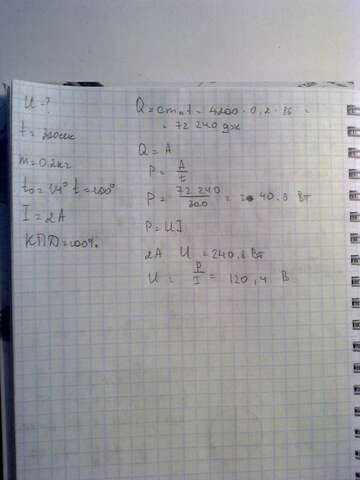 U - ?
t = 300сек
m = 0.2кг
t₀ = 14° t = 100°
I = 2А
КПД = 100%
Q = cmₙt = 4200 · 0,2 · 86 =
= 72 240 дж
Q = A
P = A/t
P = 72 240/300 = 240.8 Вт
P = UI
2А U = 240,8 Вт
U = P/I = 120,4 В